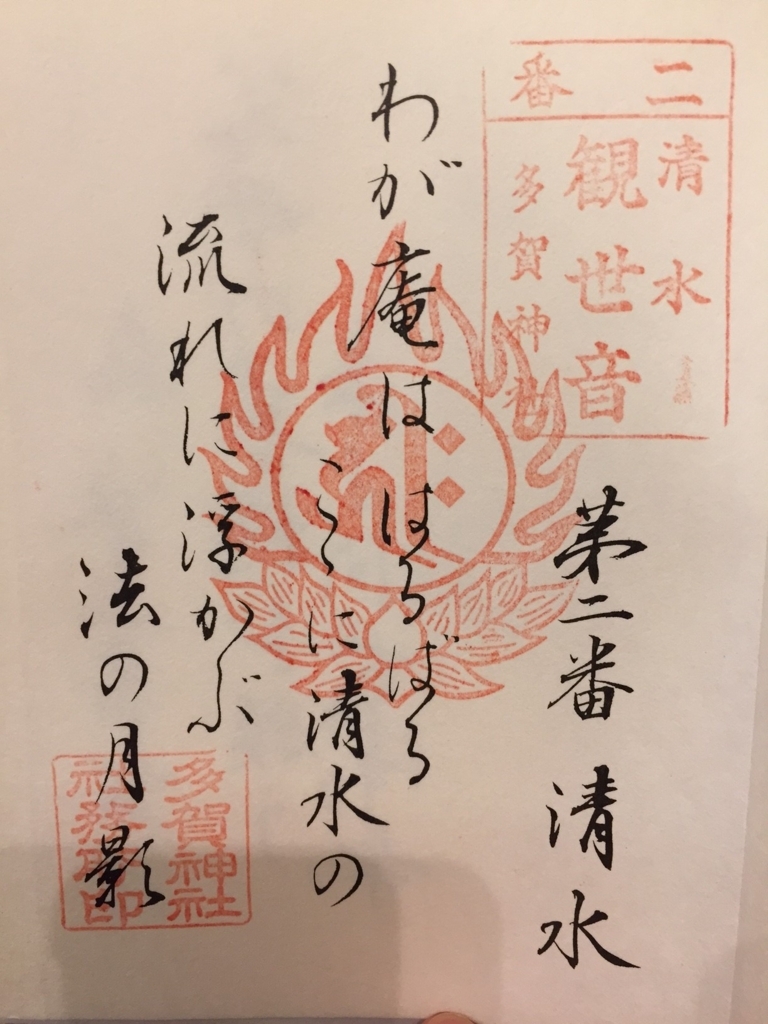 二番
清水
観世音
多賀神社
第二番 清水
わが庵は はるばる
こゝに清水の
流れに浮かぶ
法の月影
多賀神社
社務所印